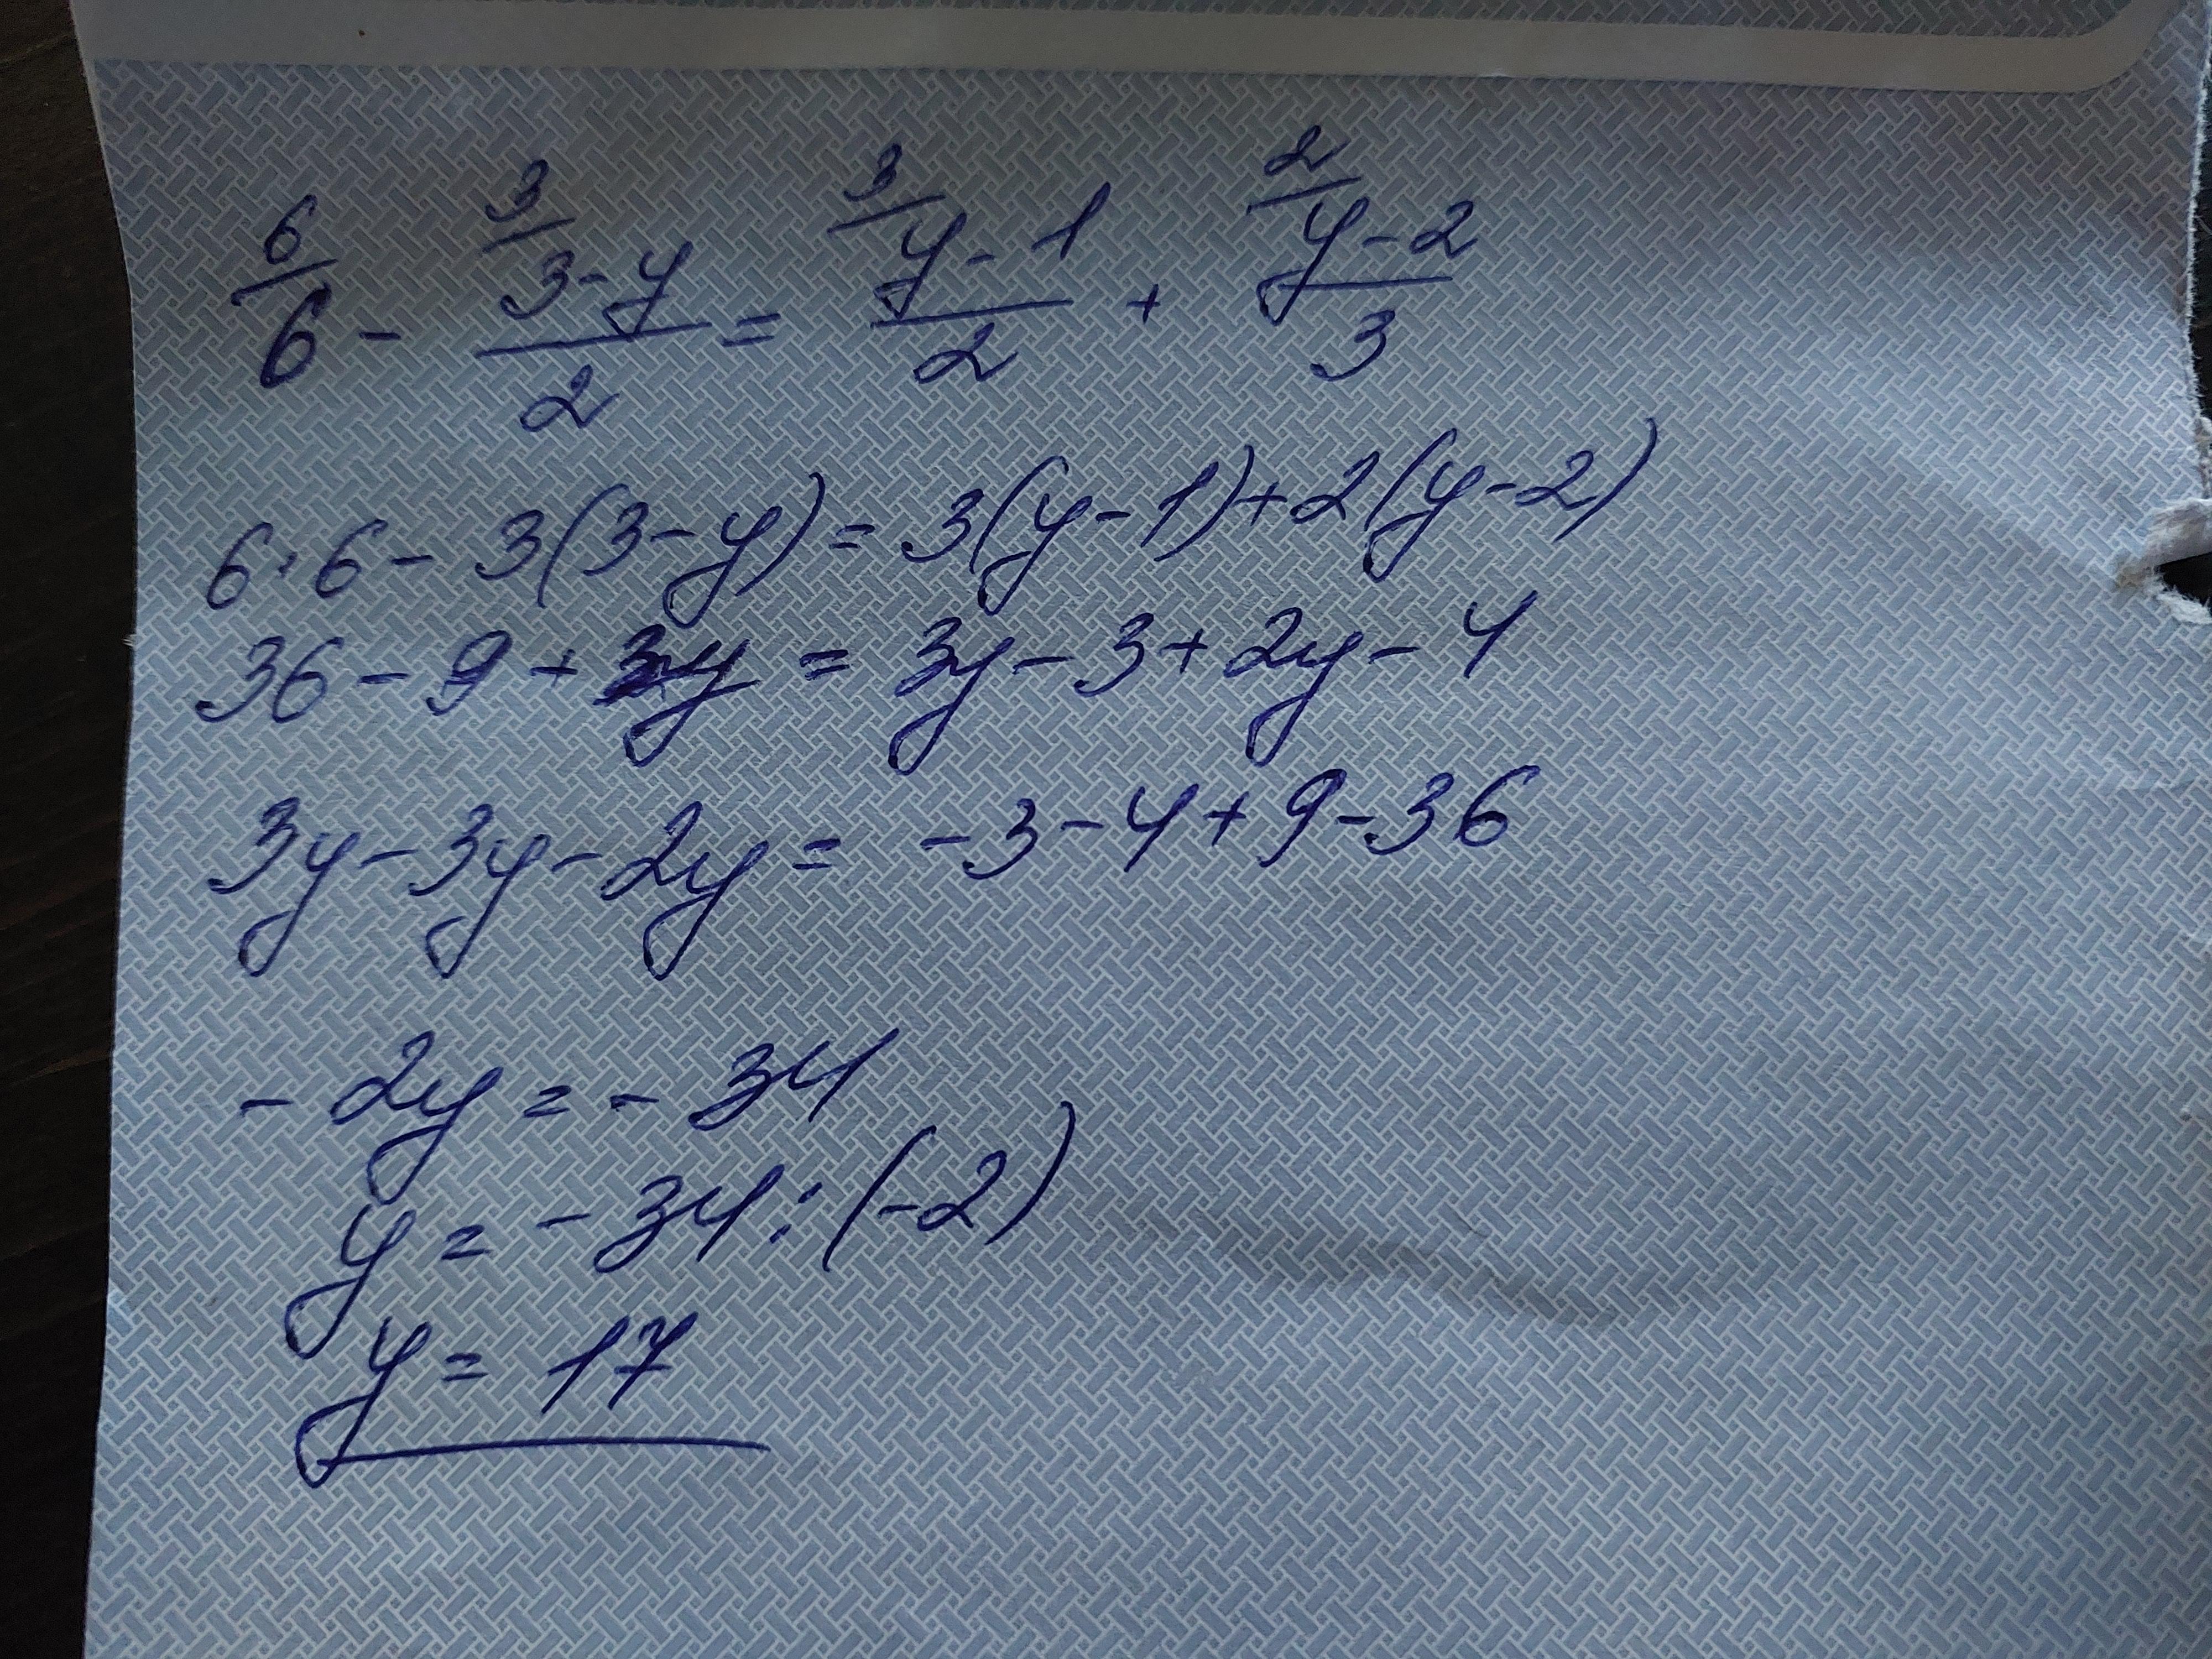 6/6 - 3/(3-y)/2 = 3/(y-1)/2 + 2/(y-2)/3
6·6 - 3(3-y) = 3(y-1) + 2(y-2)
36 - 9 + 3y = 3y - 3 + 2y - 4
3y - 3y - 2y = -3 - 4 + 9 - 36
-2y = -34
y = -34 : (-2)
y = 17